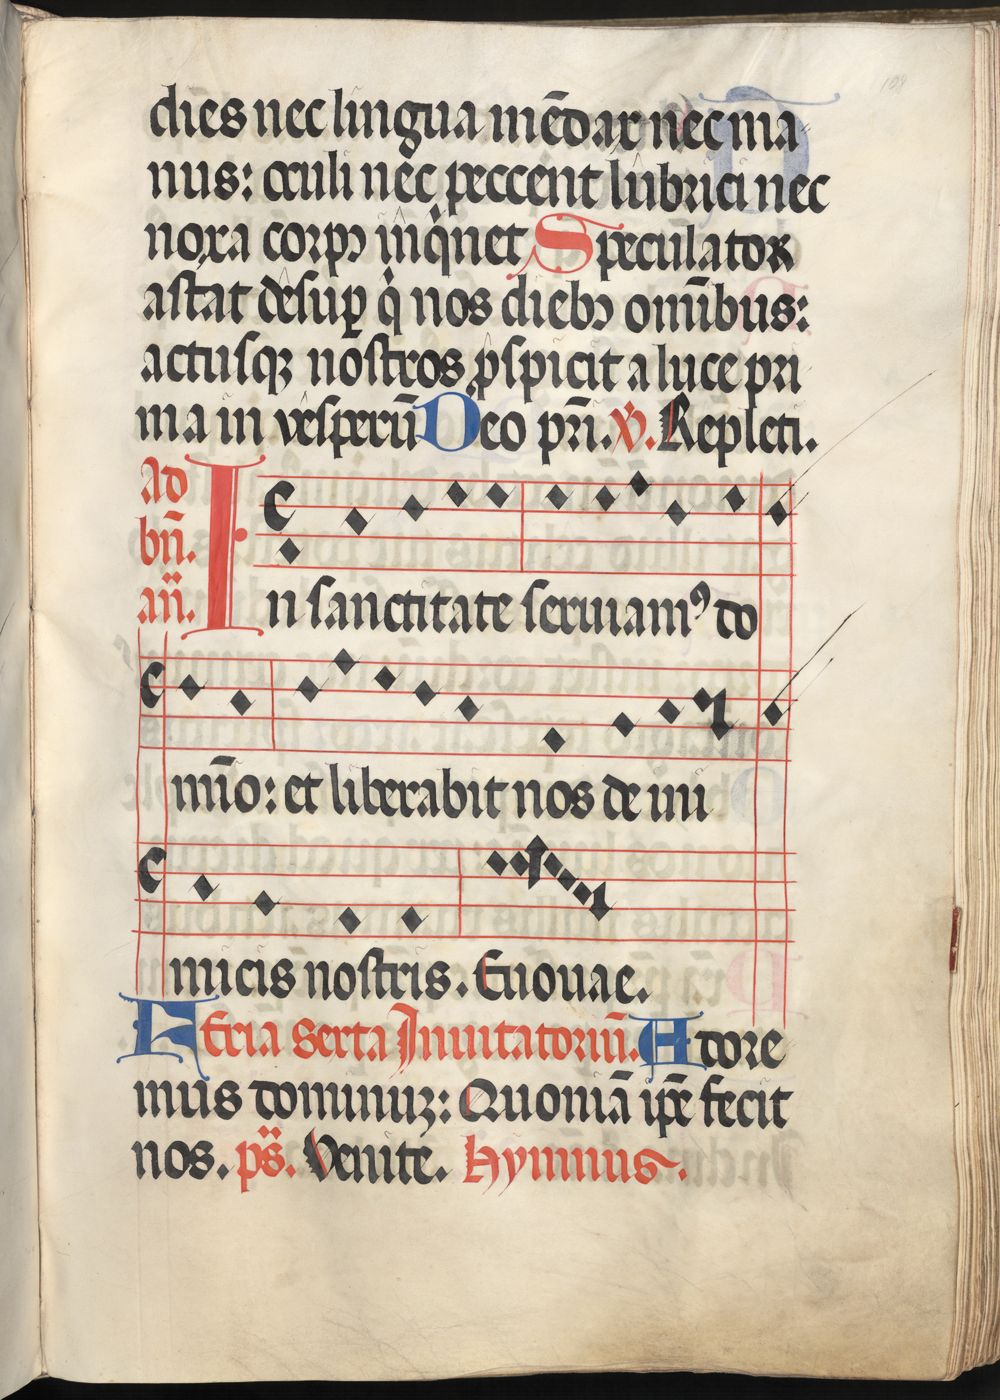 dies nec lingua mēdax nec ma
nus: oculi nec peccent lubrici nec
noxa corpꝰ inq̇net Speculator
astat desuꝑ q̇ nos diebꝰ om̄ibus:
actusqꝫ nostros ꝑspicit a luce pri
ma in vesperū Deo pr̄i. ℣. Repleti.
Ad
bn̄.
an̄.
In sanctitate seruiamꝰ do
mīo: et liberabit nos de ini
micis nostris. Euouae.
Feria Sexta Inuitatoriū. Adore
mus dominuꝫ: Quoniā ip̄e fecit
nos. ps̄. Venite. Hymnus.